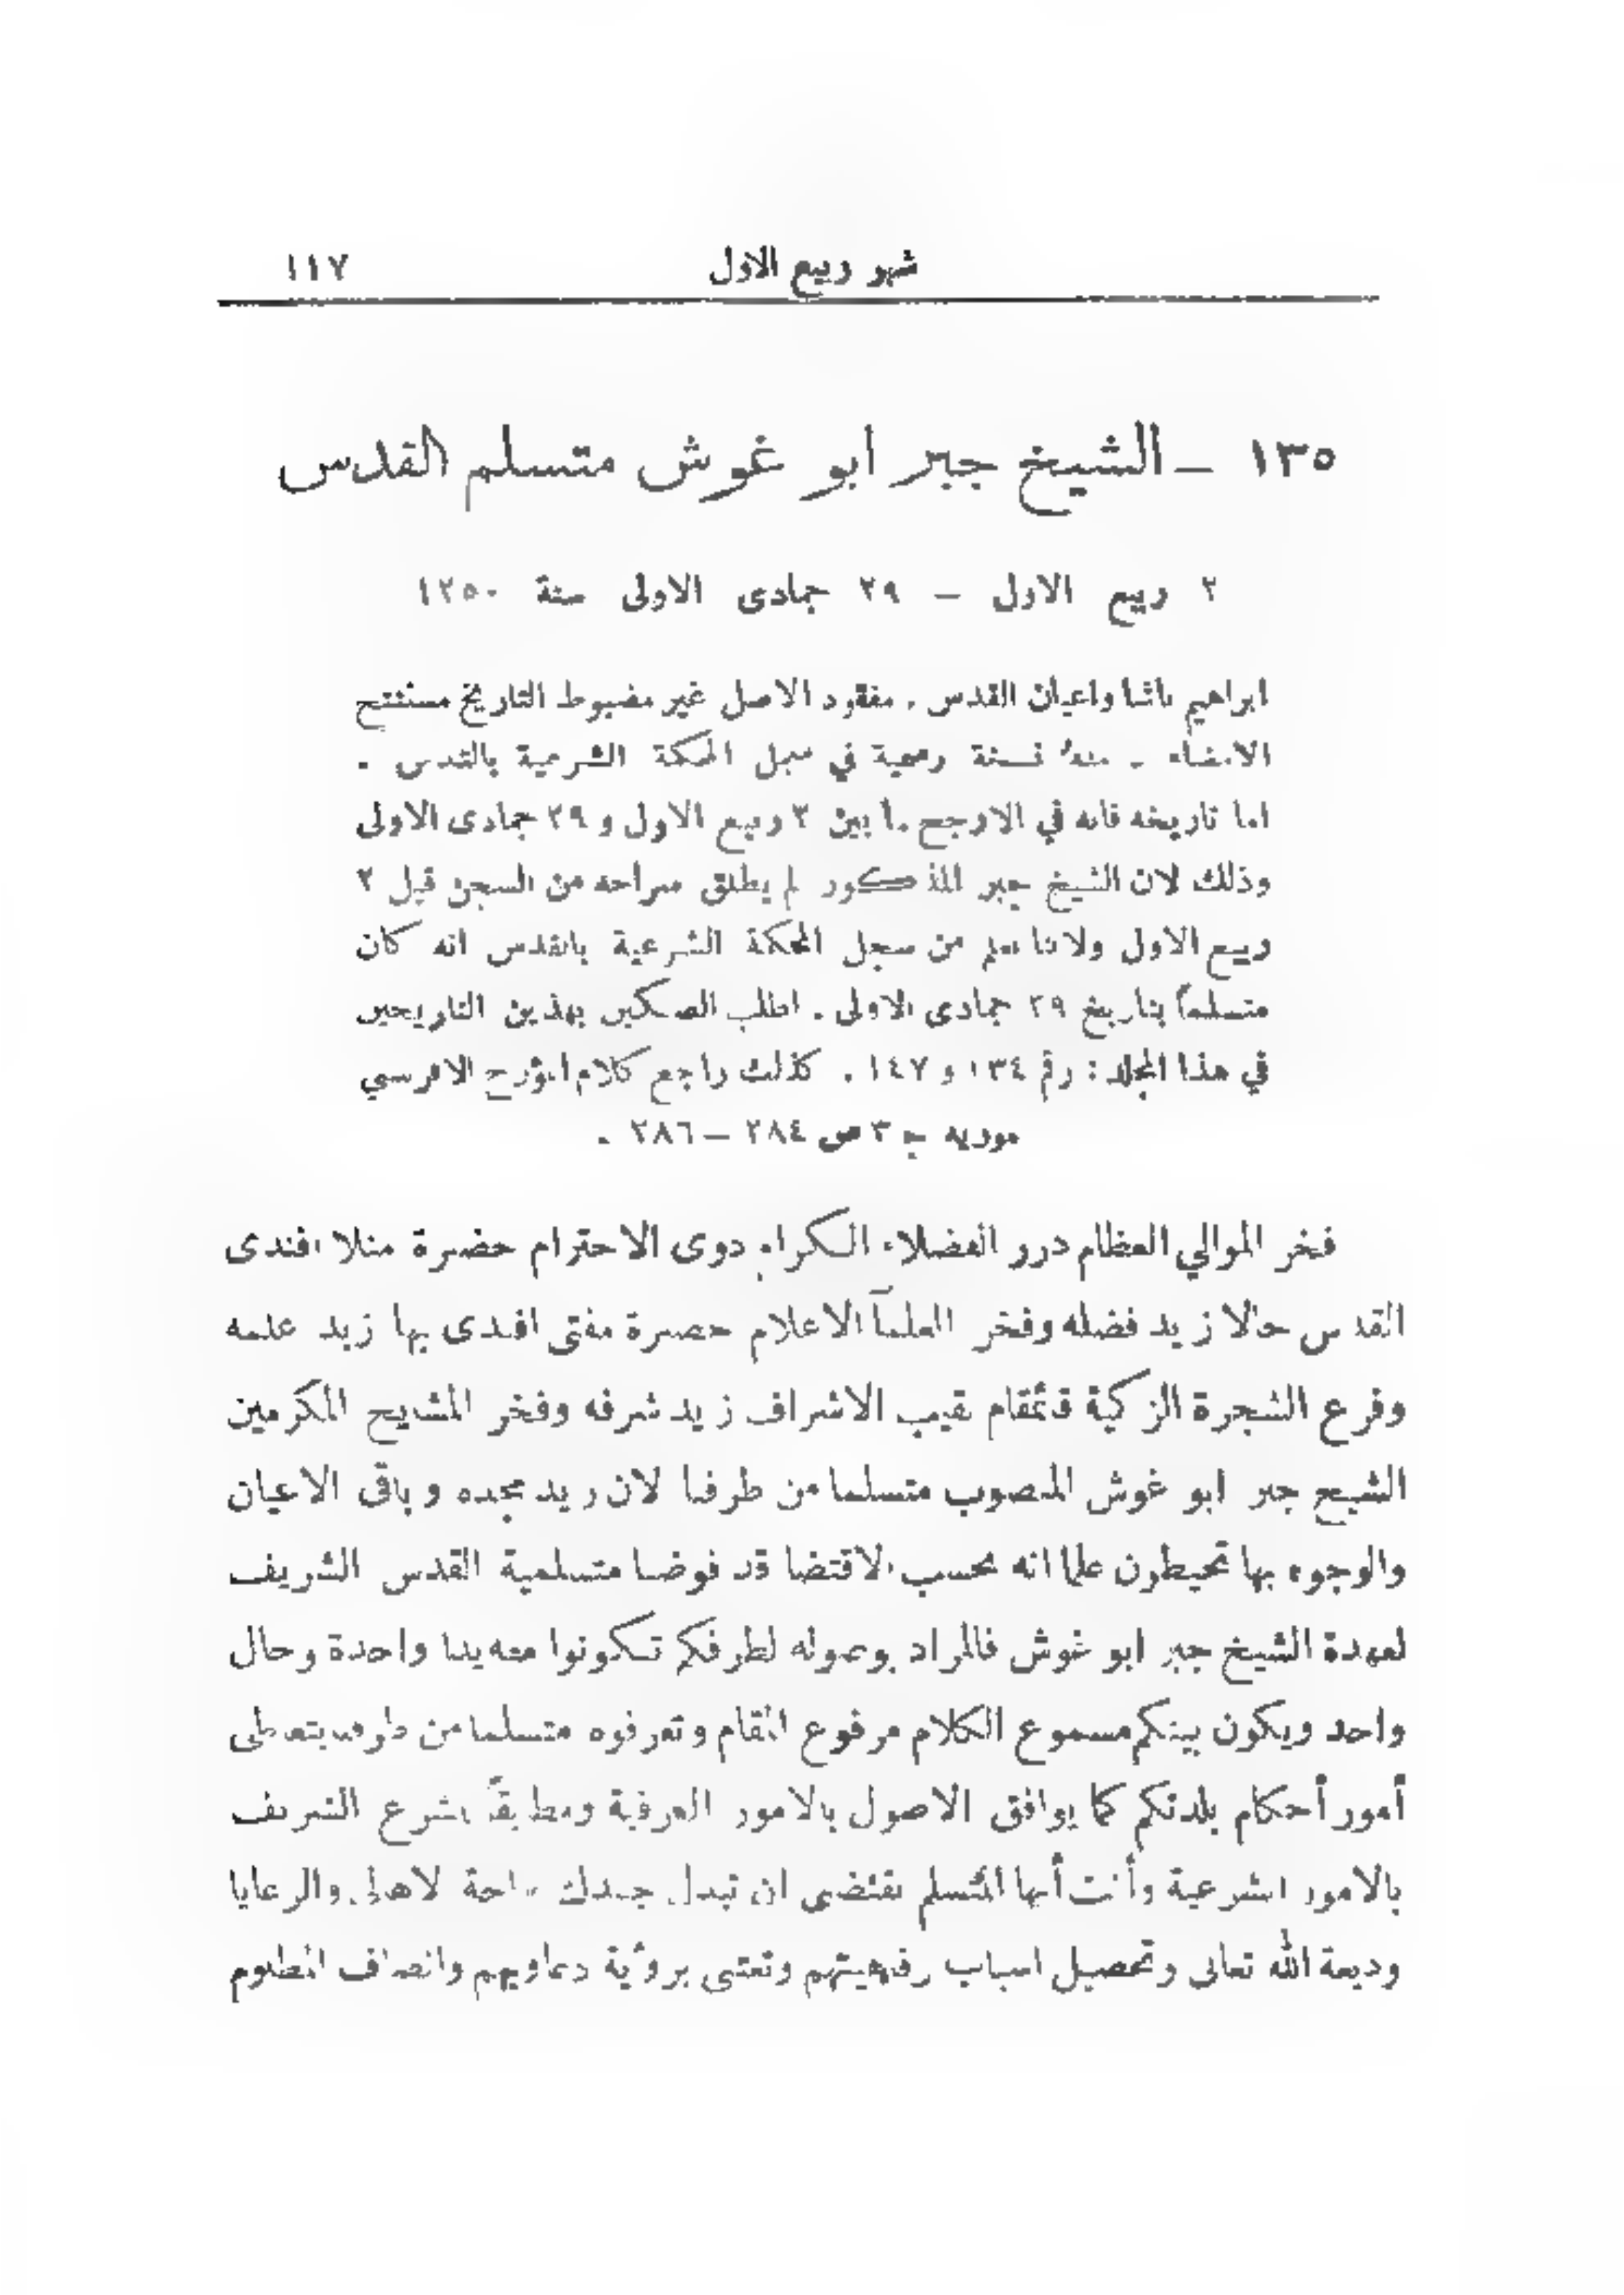 شهر ربيع الاول ١١٧
١٣٥ – الشيخ جبر ابو غوش متسلم القدس
٢ ربيع الاول – ٢٩ جمادى الاولى سنة ١٢٥٠
ابراهيم باشا واعيان القدس . مفقود الاصل غير مضبوط التاريخ مستنتج
الامضاء . منهُ نسخة رسمية في سجل المحكمة الشرعية بالقدس .
اما تاريخه فانه في الارجح ما بين ٢ ربيع الاول و ٢٩ جمادى الاولى
وذلك لان الشيخ جبر المذكور لم يطلق سراحه من السجن قبل ٢
ربيع الاول ولاننا نعلم من سجل المحكمة الشرعية بالقدس انه كان
متسلماً بتاريخ ٢٩ جمادى الاولى . اطلب الصكين بهذين التاريخين
في هذا المجلد : رقم ١٣٤ و ١٤٧ . كذلك راجع كلام المؤرخ الافرنسي
موريه ج ٣ ص ٢٨٤ – ٢٨٦ .
فخر الموالي العظام درر الفضلاء الكرام ذوى الاحترام حضرة منلا افندى
القدس حالا زيد فضله وفخر العلمآ الاعلام حضرة مفتى افندى بها زيد علمه
وفرع الشجرة الزكية قائمقام نقيب الاشراف زيد شرفه وفخر المشايخ المكرمين
الشيخ جبر ابو غوش المنصوب متسلما من طرفنا لان زيد مجده و باقى الاعيان
والوجوه بها تحيطون علما انه بحسب الاقتضا قد فوضنا متسلمية القدس الشريف
لعهدة الشيخ جبر ابو غوش فالمراد بوصوله لطرفكم تكونوا معه يدا واحدة وحال
واحد ويكون بينكم مسموع الكلام مرفوع المقام وتعرفوه متسلما من طرفنا يتعاطى
أمور أحكام بلدتكم كما يوافق الاصول بالامور العرفية ومطابقاً لشرع الشريف
بالامور الشرعية وأنت أيها المتسلم تقتضى ان تبدل جهدك براحة لاهالى والرعايا
وديعة الله تعالى وتحصيل اسباب رفهيتهم وتعتنى برؤية دعاويهم وانصاف المظلوم